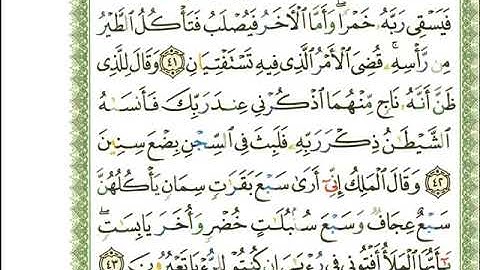 فَيَسْقِى رَبَّهُۥ خَمْرًا ۖ وَأَمَّا ٱلْءَاخَرُ فَيُصْلَبُ فَتَأْكُلُ ٱلطَّيْرُ
مِن رَّأْسِهِۦ ۚ قُضِىَ ٱلْأَمْرُ ٱلَّذِى فِيهِ تَسْتَفْتِيَانِ ٤١ وَقَالَ لِلَّذِى
ظَنَّ أَنَّهُۥ نَاجٍ مِّنْهُمَا ٱذْكُرْنِى عِندَ رَبِّكَ فَأَنسَىٰهُ
ٱلشَّيْطَـٰنُ ذِكْرَ رَبِّهِۦ فَلَبِثَ فِى ٱلسِّجْنِ بِضْعَ سِنِينَ
٤٢ وَقَالَ ٱلْمَلِكُ إِنِّىٓ أَرَىٰ سَبْعَ بَقَرَٰتٍ سِمَانٍ يَأْكُلُهُنَّ
سَبْعٌ عِجَافٌ وَسَبْعَ سُنۢبُلَـٰتٍ خُضْرٍ وَأُخَرَ يَابِسَـٰتٍ ۖ
يَـٰٓأَيُّهَا ٱلْمَلَأُ أَفْتُونِى فِى رُءْيَـٰىَ إِن كُنتُمْ لِلرُّءْيَا تَعْبُرُونَ ٤٣